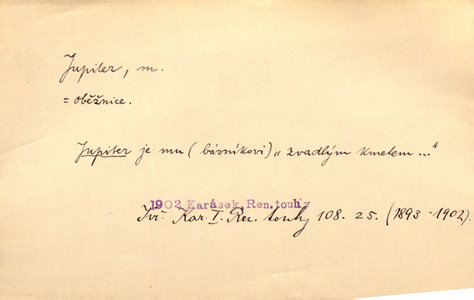 Jupiter, m.
= oběžnice.
Jupiter je mu (básníkovi) „zvadlým kmetem ..."
1902 Karásek, Ren.touhy
Jiř. Kar. I. Ren. touhy 108. 25. (1893-1902).